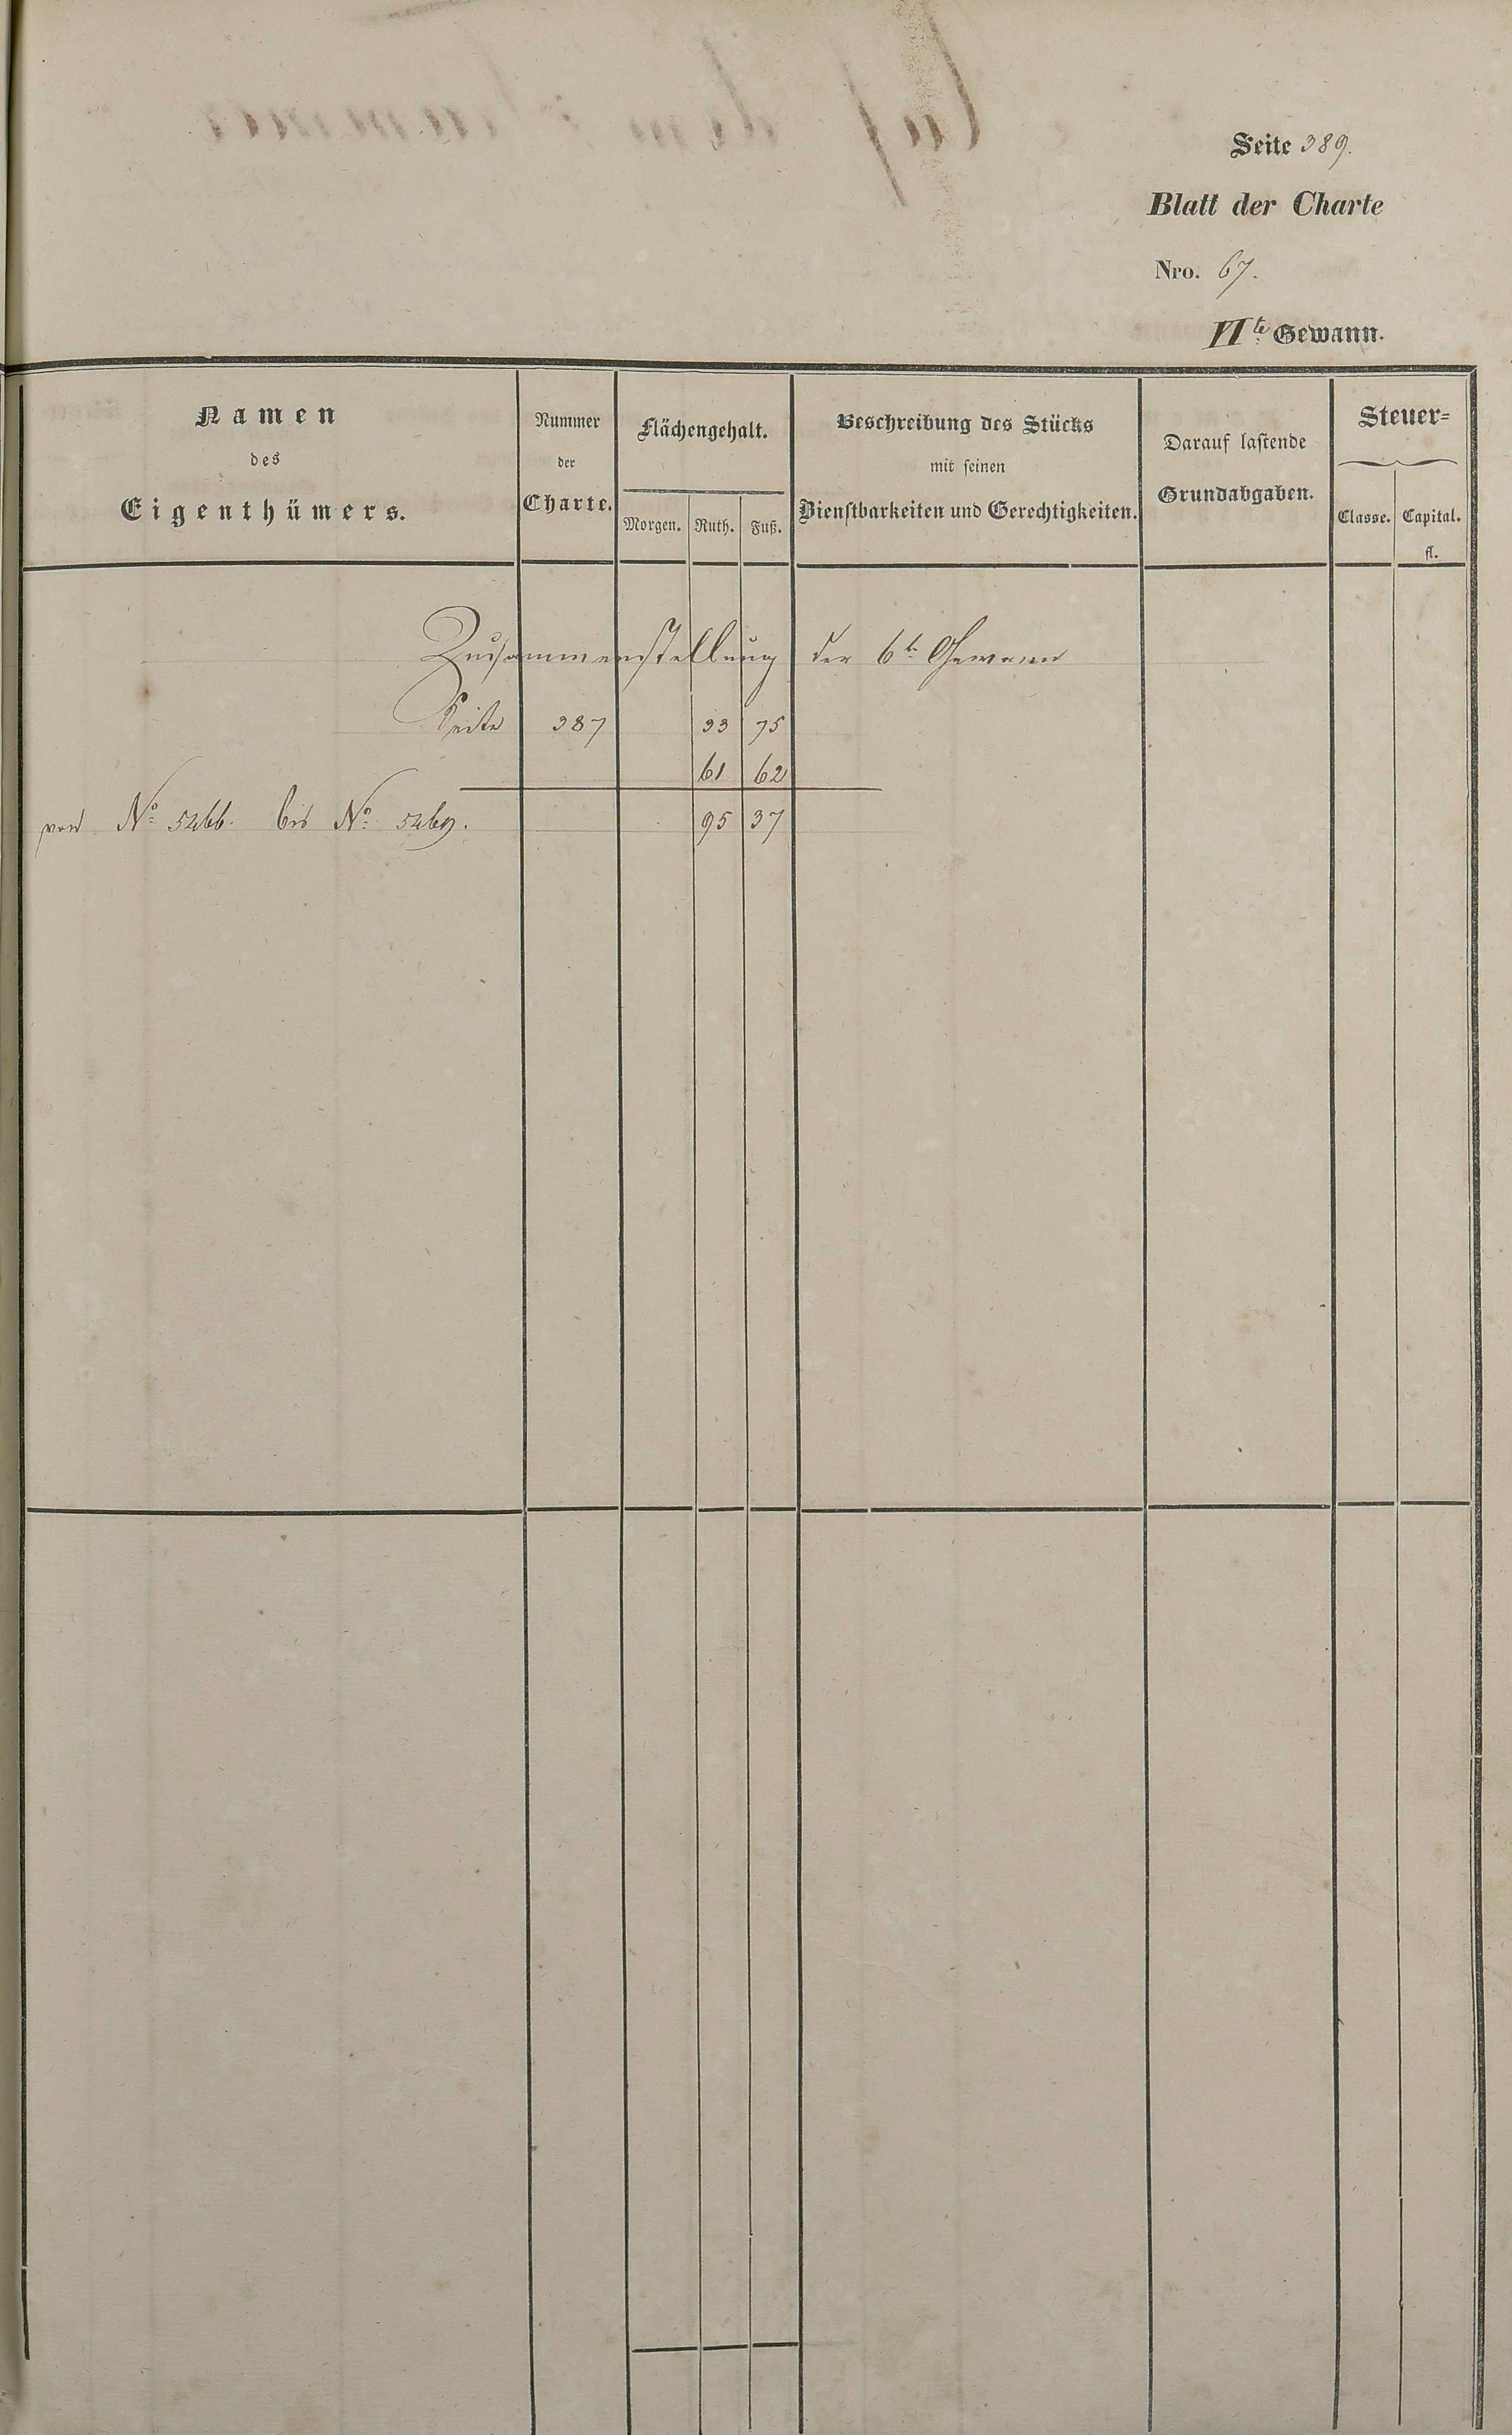 Seite 389.
Blatt der Charte
Nro. 67.
VIte Gewann.
Namen
des
Eigenthümers.
Nummer
der
Charte.
Flächengehalt.
Morgen. Ruth. Fuß.
Beschreibung des Stücks
mit seinen
Dienstbarkeiten und Gerechtigkeiten.
Darauf lastende
Grundabgaben.
Steuer=
Classe. Capital.
fl.
Zusammenstellung der 6te Gewann
Seite 387 33 75
61 62
von No 5466. bis No 5469. 95 37